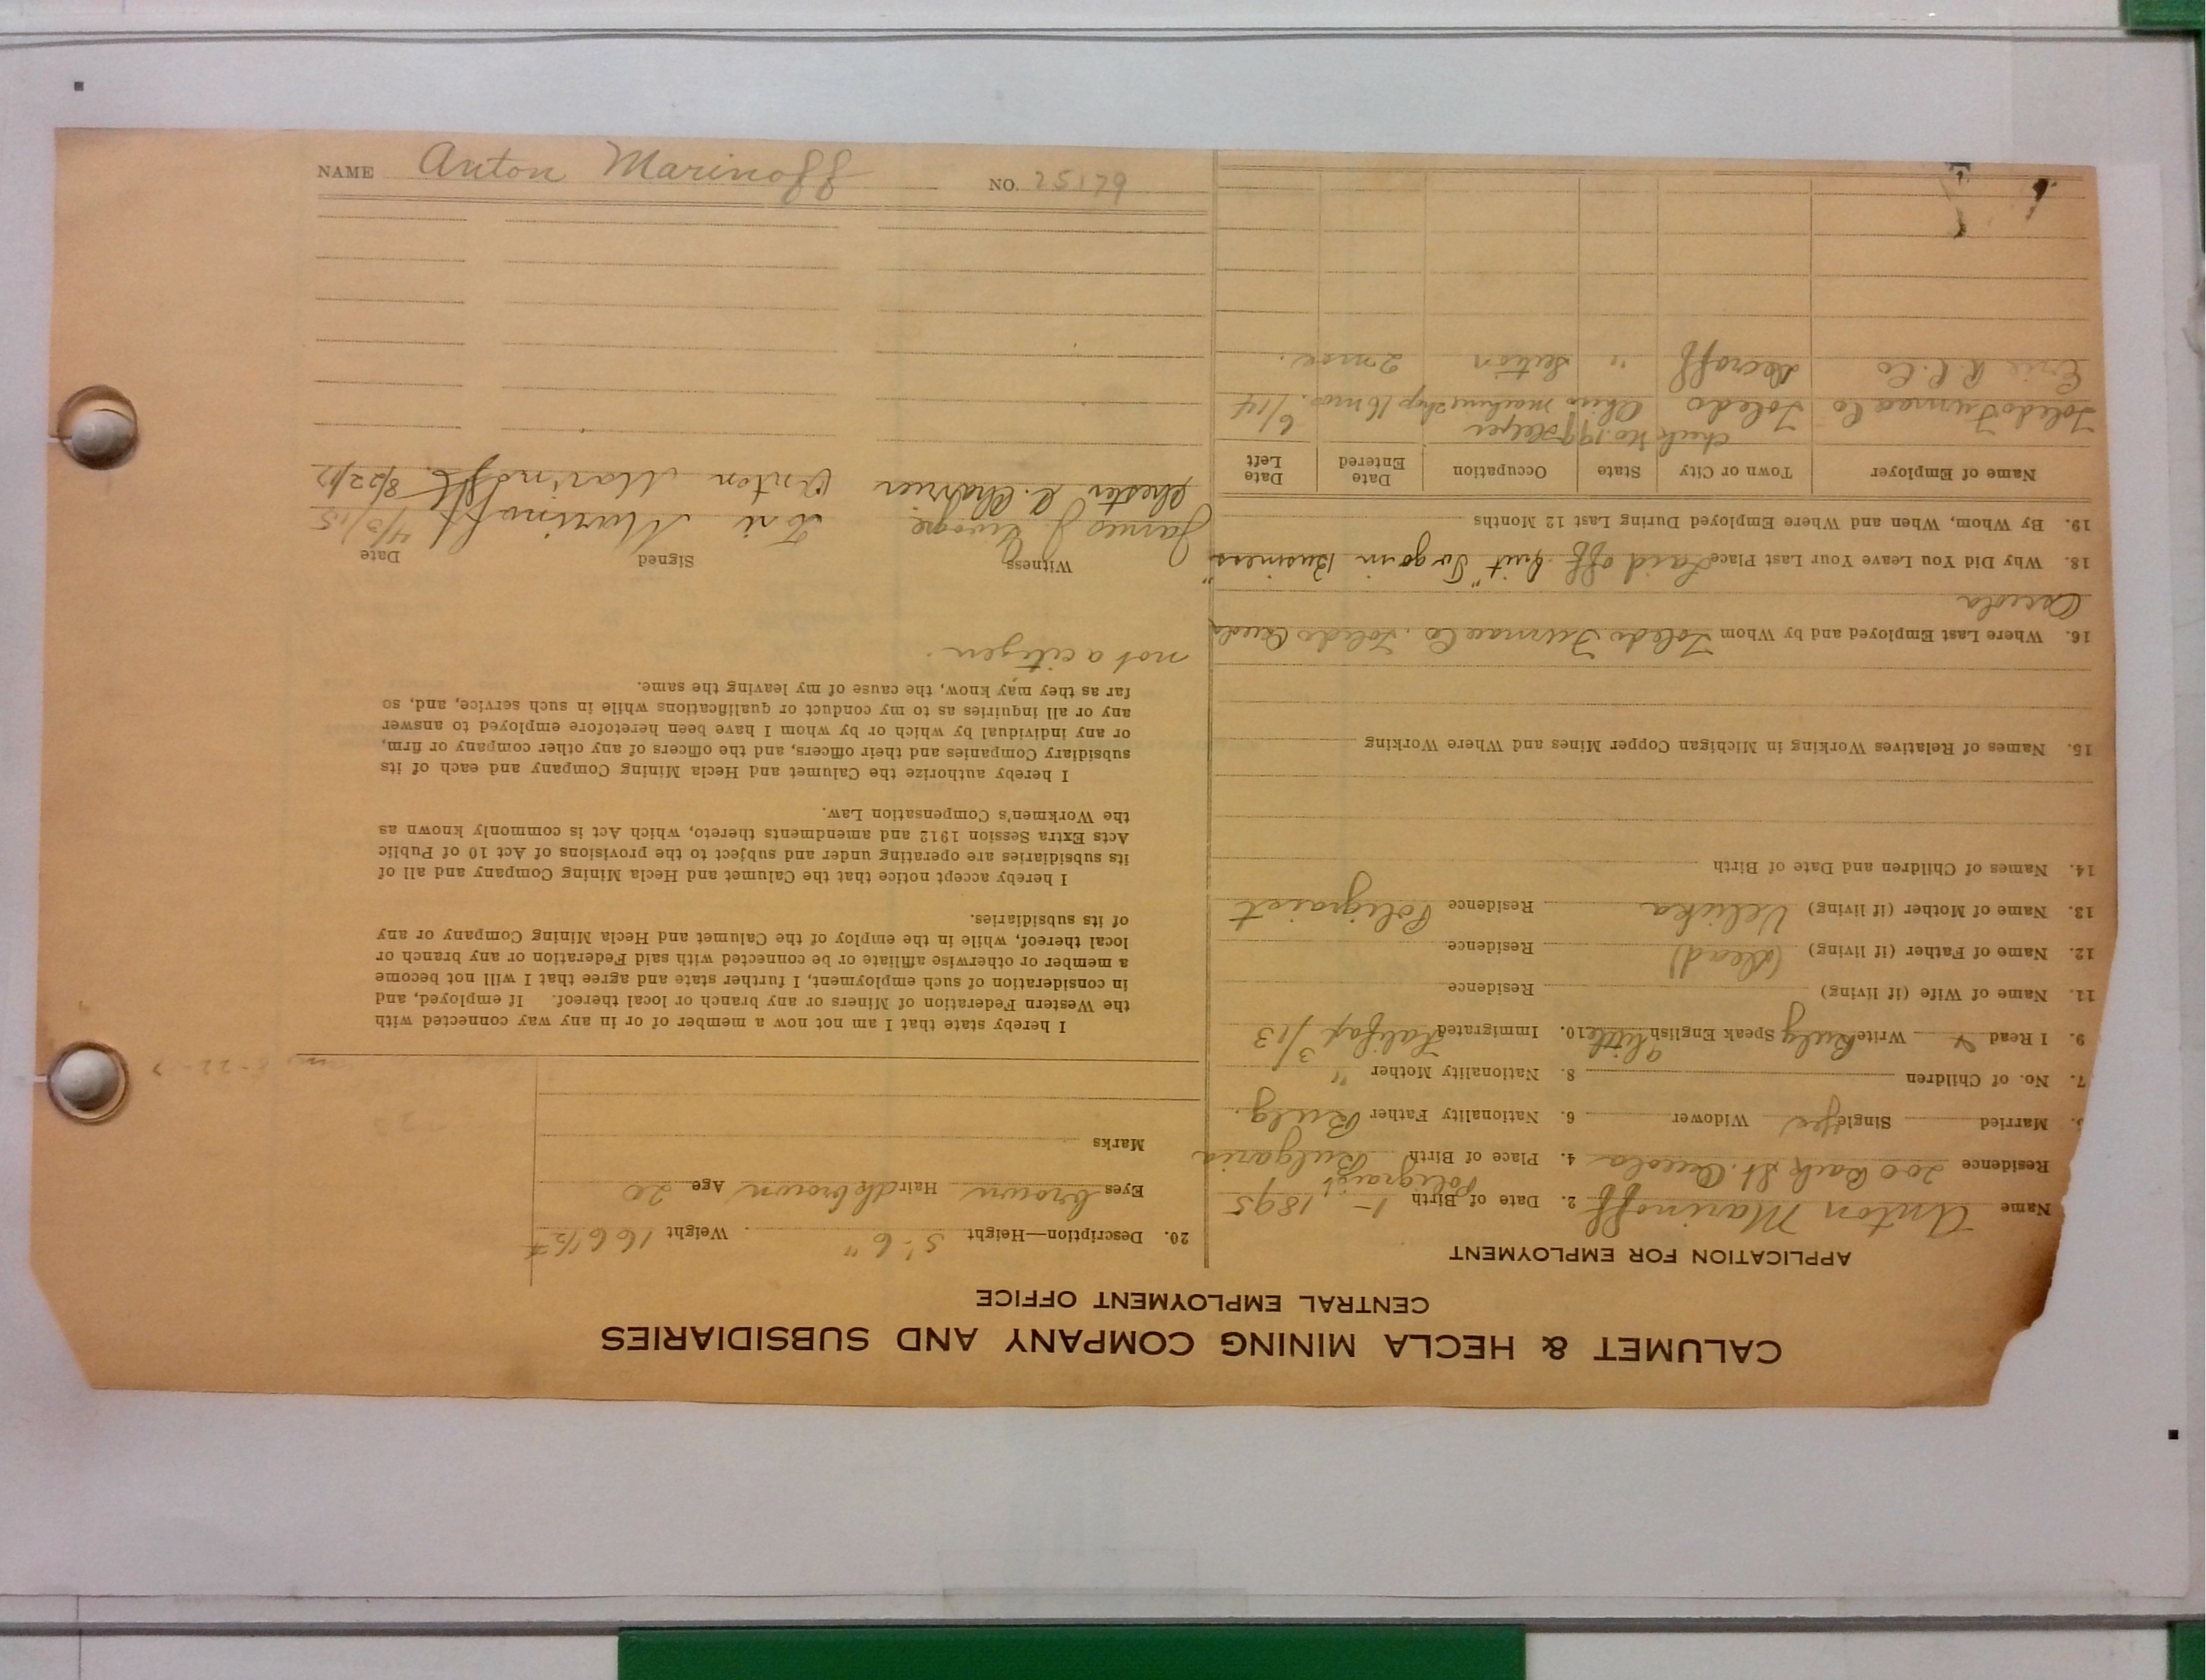 CALUMET & HECLA MINING COMPANY AND SUBSIDIARIES
CENTRAL EMPLOYMENT OFFICE
APPLICATION FOR EMPLOYMENT
Name Anton Marinoff 2. Date of Birth 1- 1895
Residence 200 Oak St. Osceola 4. Place of Birth Poligraist Bulgaria
5. Married Single yes Widower 6. Nationality Father Bulg.
7. No. of Children 8. Nationality Mother "
9. I Read Y Write Bulg Speak English a little 10. Immigrated Halifax 3/13
11. Name of Wife (if living) Residence
12. Name of Father (if living) (dead) Residence
13. Name of Mother (if living) Velicka Residence Poligraist
14. Names of Children and Date of Birth
15. Names of Relatives Working in Michigan Copper Mines and Where Working
16. Where Last Employed and by Whom Toledo Furnace Co. Toledo Osceola
Osceola
18. Why Did You Leave Your Last Place Laid off. Quit "To go in Business"
19. By Whom, When and Where Employed During Last 12 Months
Name of Employer Town or City State Occupation Date Entered Date Left
check No. 199 Helper
Toledo Furnace Co Toledo Ohio machine shop 16 mos. 6/14
Erie R.R. Co " Section 2 mos.
20. Description—Height 5'-6" Weight 166 1/2 #
Eyes brown Hair dk brown Age 20
Marks
I hereby state that I am not now a member of or in any way connected with
the Western Federation of Miners or any branch or local thereof. If employed, and
in consideration of such employment, I further state and agree that I will not become
a member or otherwise affiliate or be connected with said Federation or any branch or
local thereof, while in the employ of the Calumet and Hecla Mining Company or any
of its subsidiaries.
I hereby accept notice that the Calumet and Hecla Mining Company and all of
its subsidiaries are operating under and subject to the provisions of Act 10 of Public
Acts Extra Session 1912 and amendments thereto, which Act is commonly known as
the Workmen's Compensation Law.
I hereby authorize the Calumet and Hecla Mining Company and each of its
subsidiary Companies and their officers, and the officers of any other company or firm,
or any individual by which or by whom I have been heretofore employed to answer
any or all inquiries as to my conduct or qualifications while in such service, and, so
far as they may know, the cause of my leaving the same.
not a citizen.
Witness Signed Date
James J. Marinoff 4/3/15
Chester A. Anton Marinoff 8/22/17
NAME Anton Marinoff NO. 25179